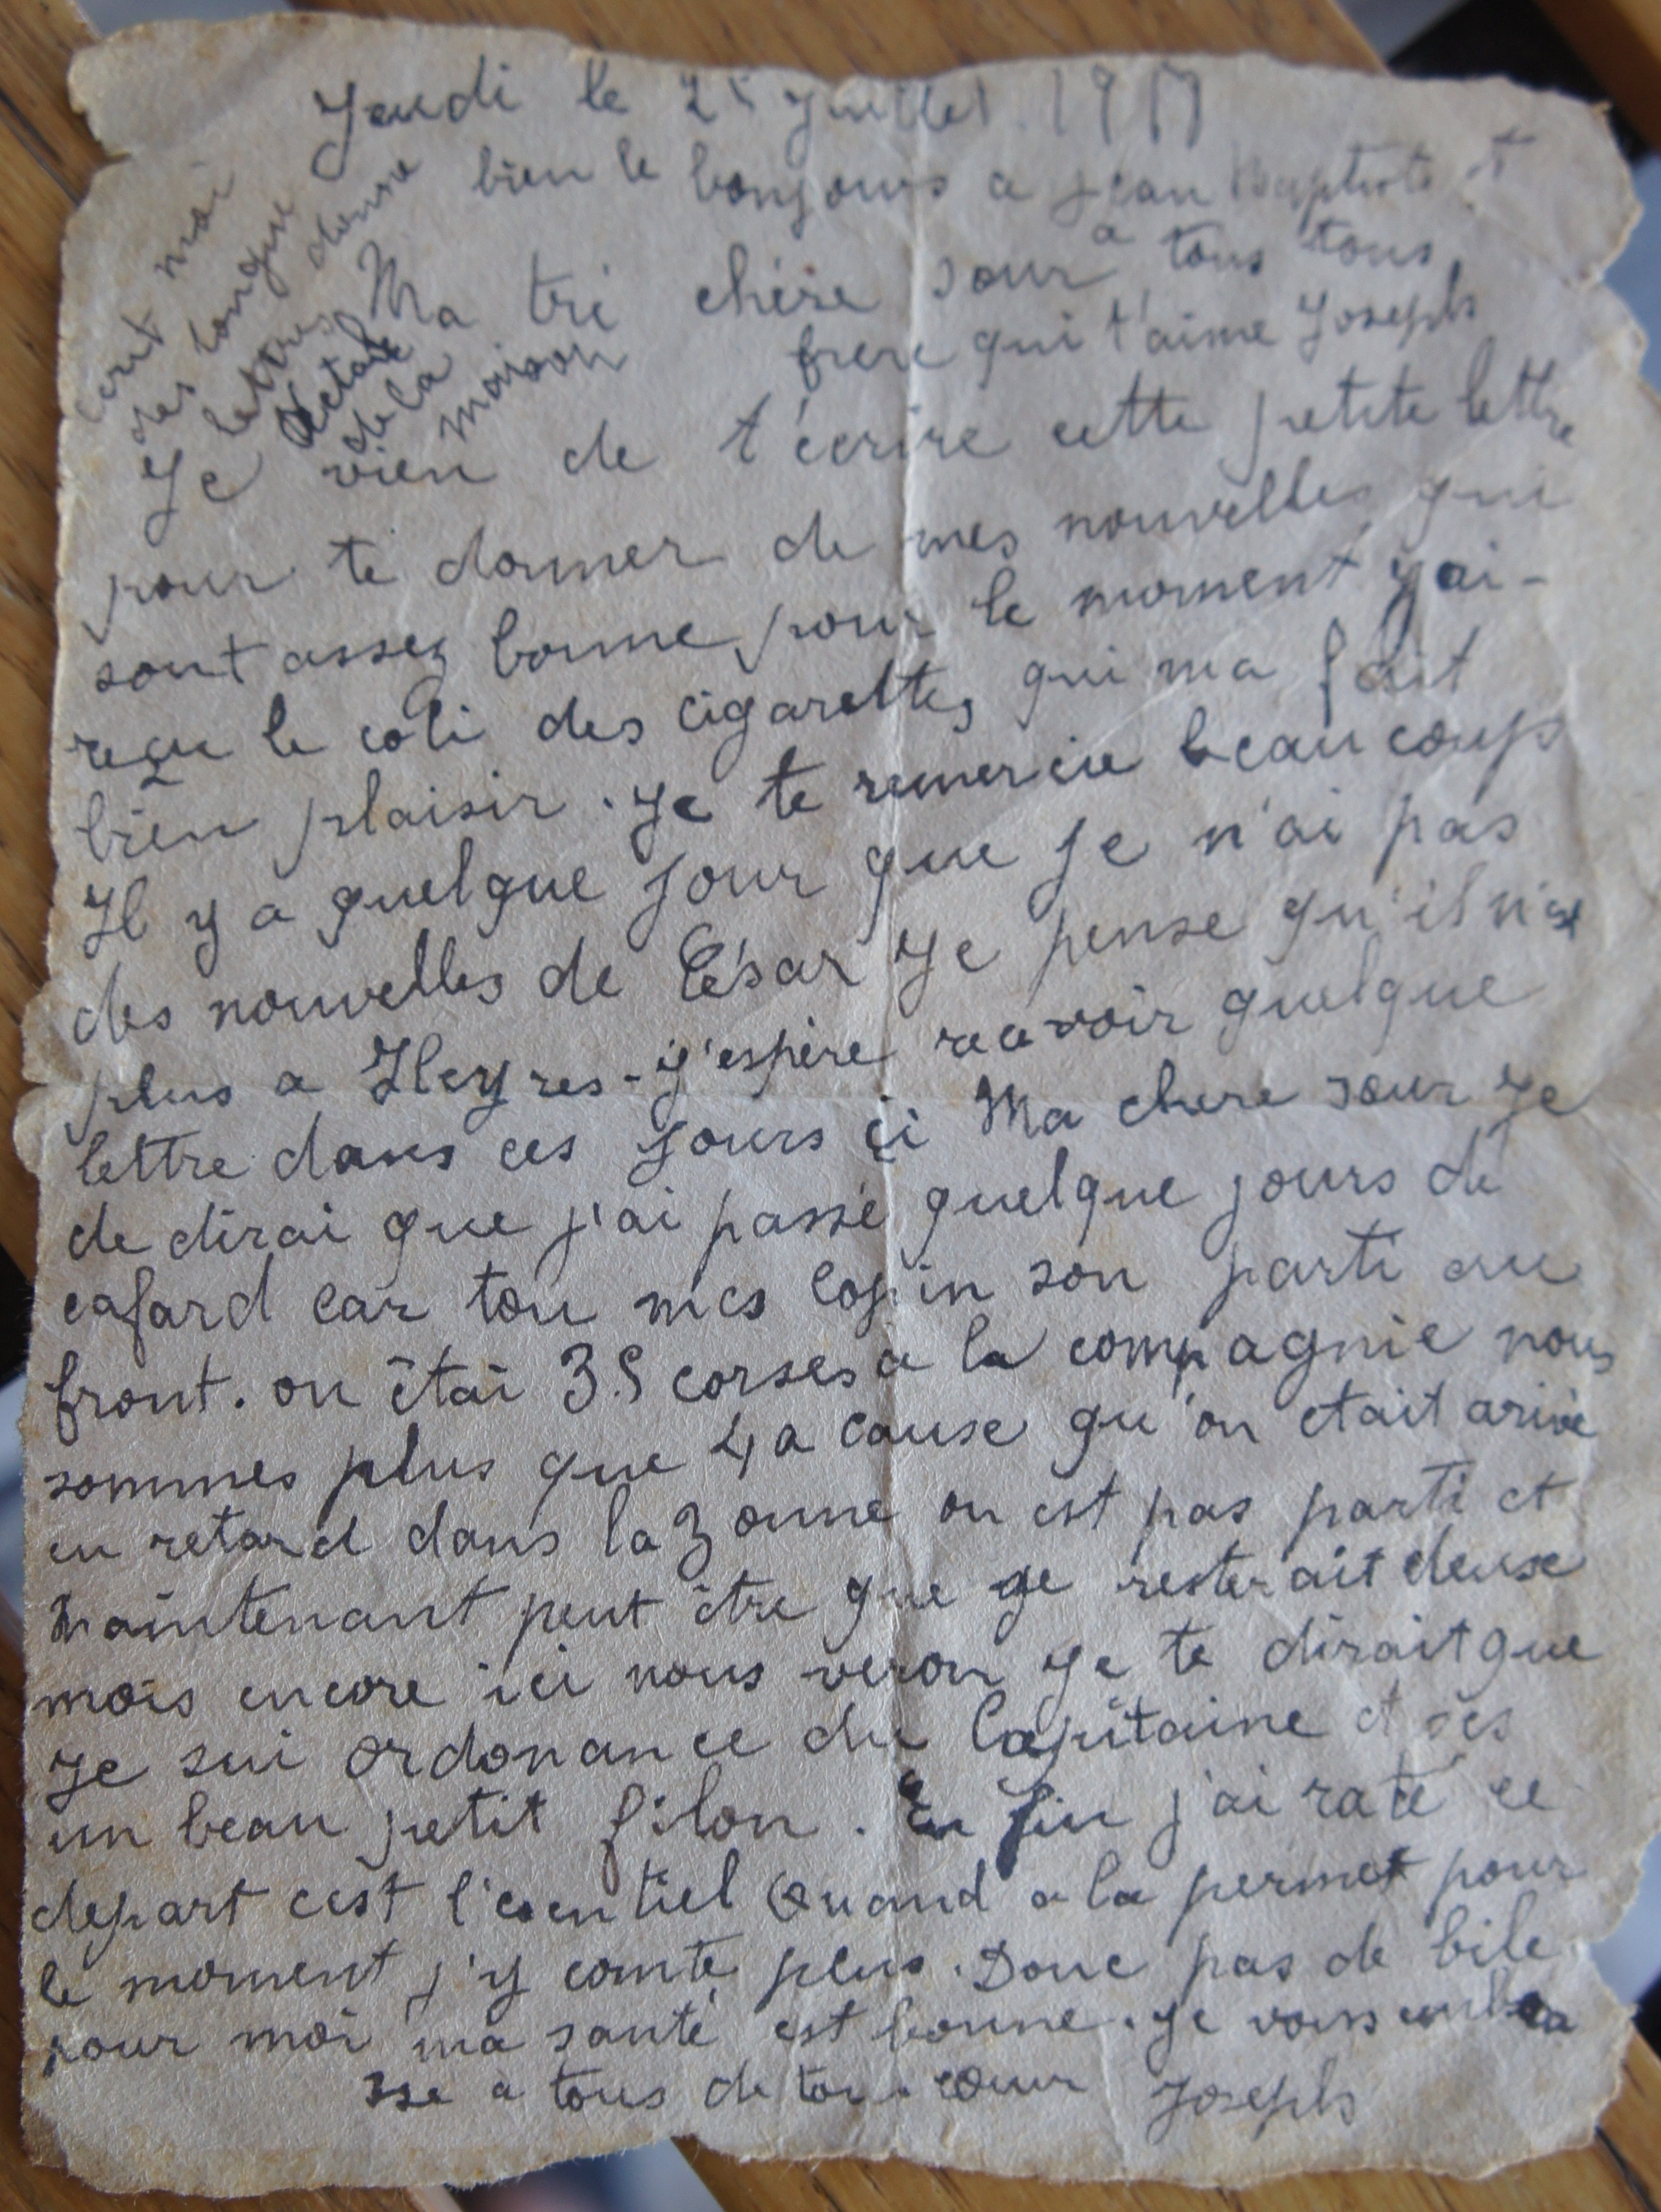 Jeudi le 25 Juillet 19
bien le bonjours a Jean Baptiste et
a tous tous
ecrit moi
des longue
lettres donne
detail
de la
maison
Ma tré chére sour
frere qui t'aime Joseph
Je vien de t'écrire cette petite lettre
pour te donner de mes nouvelles qui
sont assez bonne pour le moment j'ai-
reçu le coli des cigarettes qui ma fait
bien plaisir. Je te remercie beaucoup
Il y a quelque jour que je n'ai pas
des nouvelles de César Je pense qu'il n'est
plus a Heyres - j'espère recevoir quelque
lettre dans ces jours çi Ma chere sour Je
de dirai que j'ai passé quelque jours de
cafard car tou mes copin son parti au
front. on êtai 35 corses a la compagnie nous
sommes plus que 4 a cause qu'on etait arivé
en retard dans la zonne on est pas parti et
maintenant peut être que ge resterait deuse
mois encore ici nous veron Je te dirait que
Je sui ordonance du Capitaine et sès
un beau petit filon. En fin j'ai raté ce
depart cest l'esentiel Quand a la permet pour
le moment j'y comte plus. Donc pas de bile
pour moi ma santé est bonne. Je vous embra
sse a tous de tou coeur Joseph